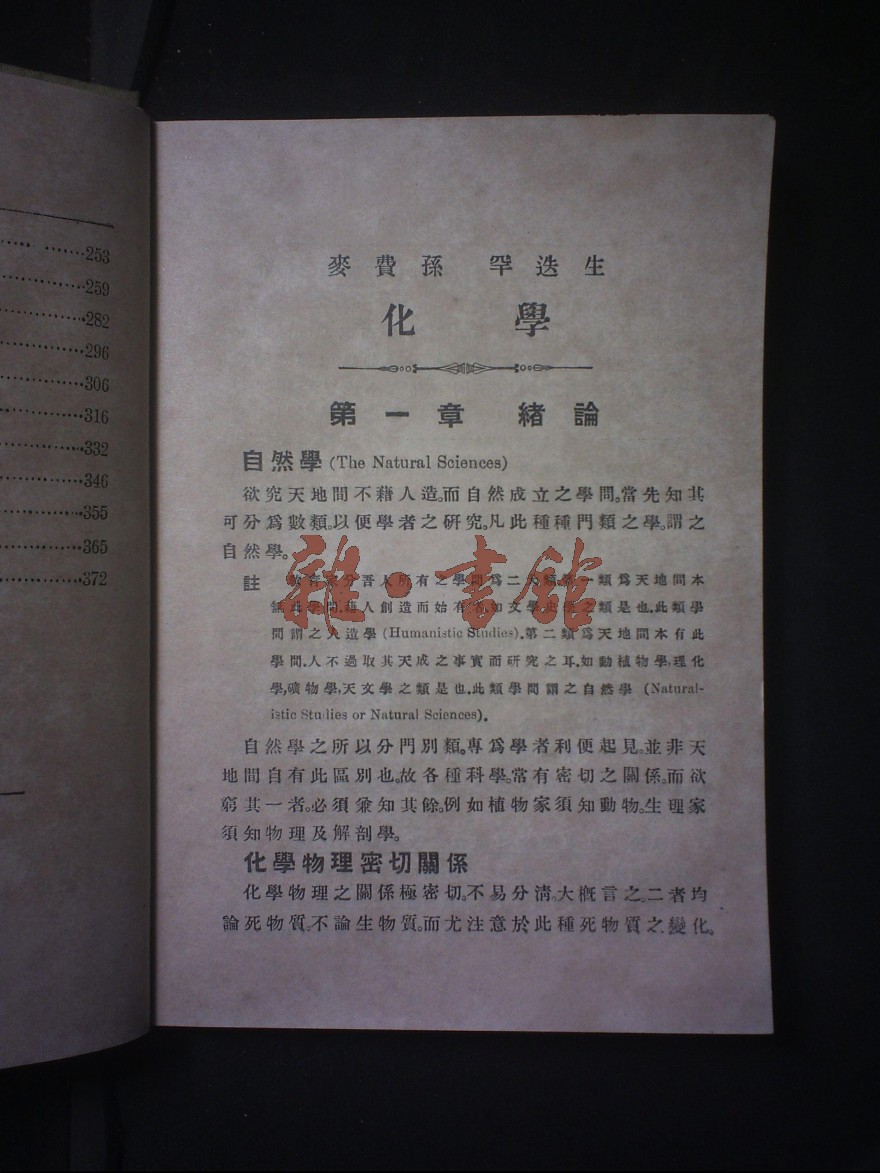 253
259
282
296
306
316
332
346
355
365
372
麥費孫 罕迭生
化學
第一章 緒論
自然學 (The Natural Sciences)
欲究天地間不藉人造。而自然成立之學問。當先知其
可分為數類。以便學者之研究。凡此種種門類之學。謂之
自然學。
註 教育家分吾人所有之學問爲二大類。第一類爲天地間本
無此學問。藉人創造而始有者。如文學史學之類是也。此類學
問謂之人造學 (Humanistic Studies)。第二類爲天地間本有此
學問。人不過取其天成之事實而研究之耳。如動植物學,理化
學,礦物學,天文學之類是也。此類學問謂之自然學 (Natural-
istic Studies or Natural Sciences)。
自然學之所以分門別類。專爲學者利便起見。並非天
地間自有此區別也。故各種科學。常有密切之關係。而欲
窮其一者。必須兼知其餘。例如植物家須知動物。生理家
須知物理及解剖學。
化學物理密切關係
化學物理之關係極密切。不易分清。大概言之。二者均
論死物質。不論生物質。而尤注意於此種死物質之變化。
雜·書館